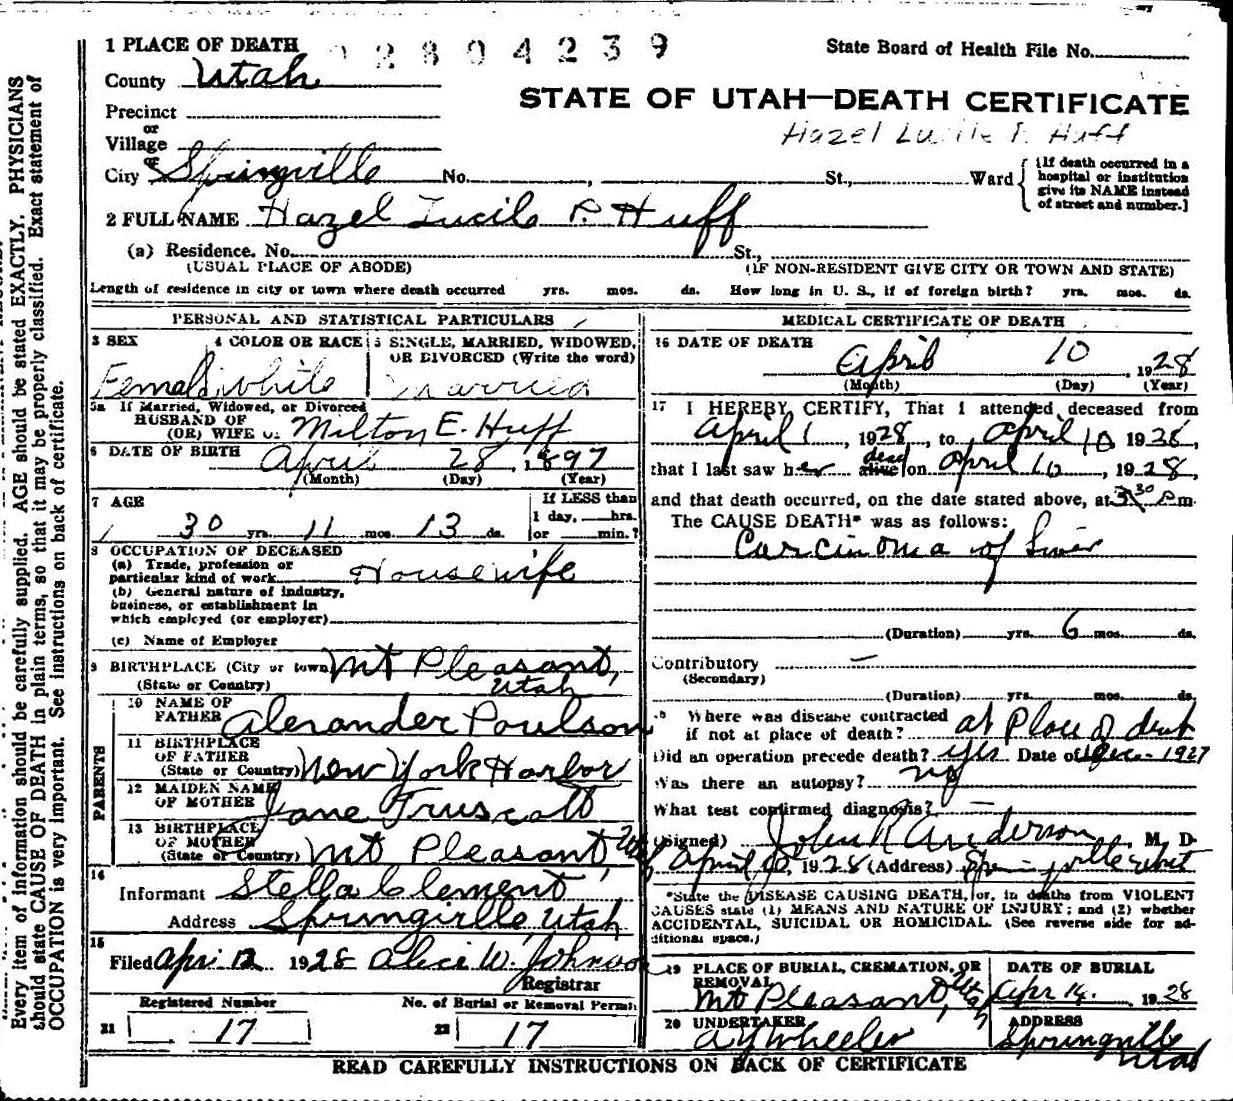 1 PLACE OF DEATH 2804239 State Board of Health File No.
County Utah
STATE OF UTAH—DEATH CERTIFICATE
Precinct
or
Village
Hazel Lucile P. Huff
or
City Springville No. , St., Ward {[If death occurred in a hospital or institution give its NAME instead of street and number.]
2 FULL NAME Hazel Lucile P. Huff
(a) Residence. No. St.,
(USUAL PLACE OF ABODE) (IF NON-RESIDENT GIVE CITY OR TOWN AND STATE)
Length of residence in city or town where death occurred yrs. mos. ds. How long in U. S., if of foreign birth? yrs. mos. ds.
PERSONAL AND STATISTICAL PARTICULARS
3 SEX 4 COLOR OR RACE 5 SINGLE, MARRIED, WIDOWED,
OR DIVORCED (Write the word)
Female white married
5a If Married, Widowed, or Divorced
HUSBAND OF
(OR) WIFE OF Milton E. Huff
6 DATE OF BIRTH April 28, 1897
(Month) (Day) (Year)
7 AGE If LESS than
1 day, hrs.
30 yrs. 11 mos. 13 ds. or min.?
8 OCCUPATION OF DECEASED
(a) Trade, profession or
particular kind of work Housewife
(b) General nature of industry,
business, or establishment in
which employed (or employer)
(c) Name of Employer
9 BIRTHPLACE (City or town) Mt Pleasant,
(State or Country) Utah
PARENTS
10 NAME OF
FATHER Alexander Poulson
11 BIRTHPLACE
OF FATHER
(State or Country) New York Harbor
12 MAIDEN NAME
OF MOTHER Jane Truscott
13 BIRTHPLACE
OF MOTHER
(State or Country) Mt Pleasant, Utah
14
Informant Stella Clement
Address Springville, Utah
15
Filed Apr. 12 1928 Alice W. Johnson
Registrar
Registered Number No. of Burial or Removal Permit
21 17 22 17
MEDICAL CERTIFICATE OF DEATH
16 DATE OF DEATH
April 10, 1928
(Month) (Day) (Year)
17 I HEREBY CERTIFY, That I attended deceased from
April 1, 1928, to April 10 1928,
that I last saw her alive dead on April 10, 1928,
and that death occurred, on the date stated above, at 3 30 P.m.
The CAUSE DEATH* was as follows:
Carcinoma of Liver
(Duration) yrs. 6 mos. ds.
Contributory —
(Secondary)
(Duration) yrs. mos. ds.
18 Where was disease contracted
if not at place of death? at Place of death
Did an operation precede death? yes Date of Dec - 1927
Was there an autopsy? no
What test confirmed diagnosis? —
(Signed) John R Anderson, M. D.
April 10, 1928 (Address) Springville Utah
*State the DISEASE CAUSING DEATH, or, in deaths from VIOLENT
CAUSES state (1) MEANS AND NATURE OF INJURY; and (2) whether
ACCIDENTAL, SUICIDAL OR HOMICIDAL. (See reverse side for ad-
ditional space.)
19 PLACE OF BURIAL, CREMATION, OR DATE OF BURIAL
REMOVAL
Mt Pleasant, Utah Apr 14. 1928
20 UNDERTAKER ADDRESS
A Y Wheeler Springville
Utah
READ CAREFULLY INSTRUCTIONS ON BACK OF CERTIFICATE
Every item of information should be carefully supplied. AGE should be stated EXACTLY. PHYSICIANS
should state CAUSE OF DEATH in plain terms, so that it may be properly classified. Exact statement of
OCCUPATION is very important. See instructions on back of certificate.